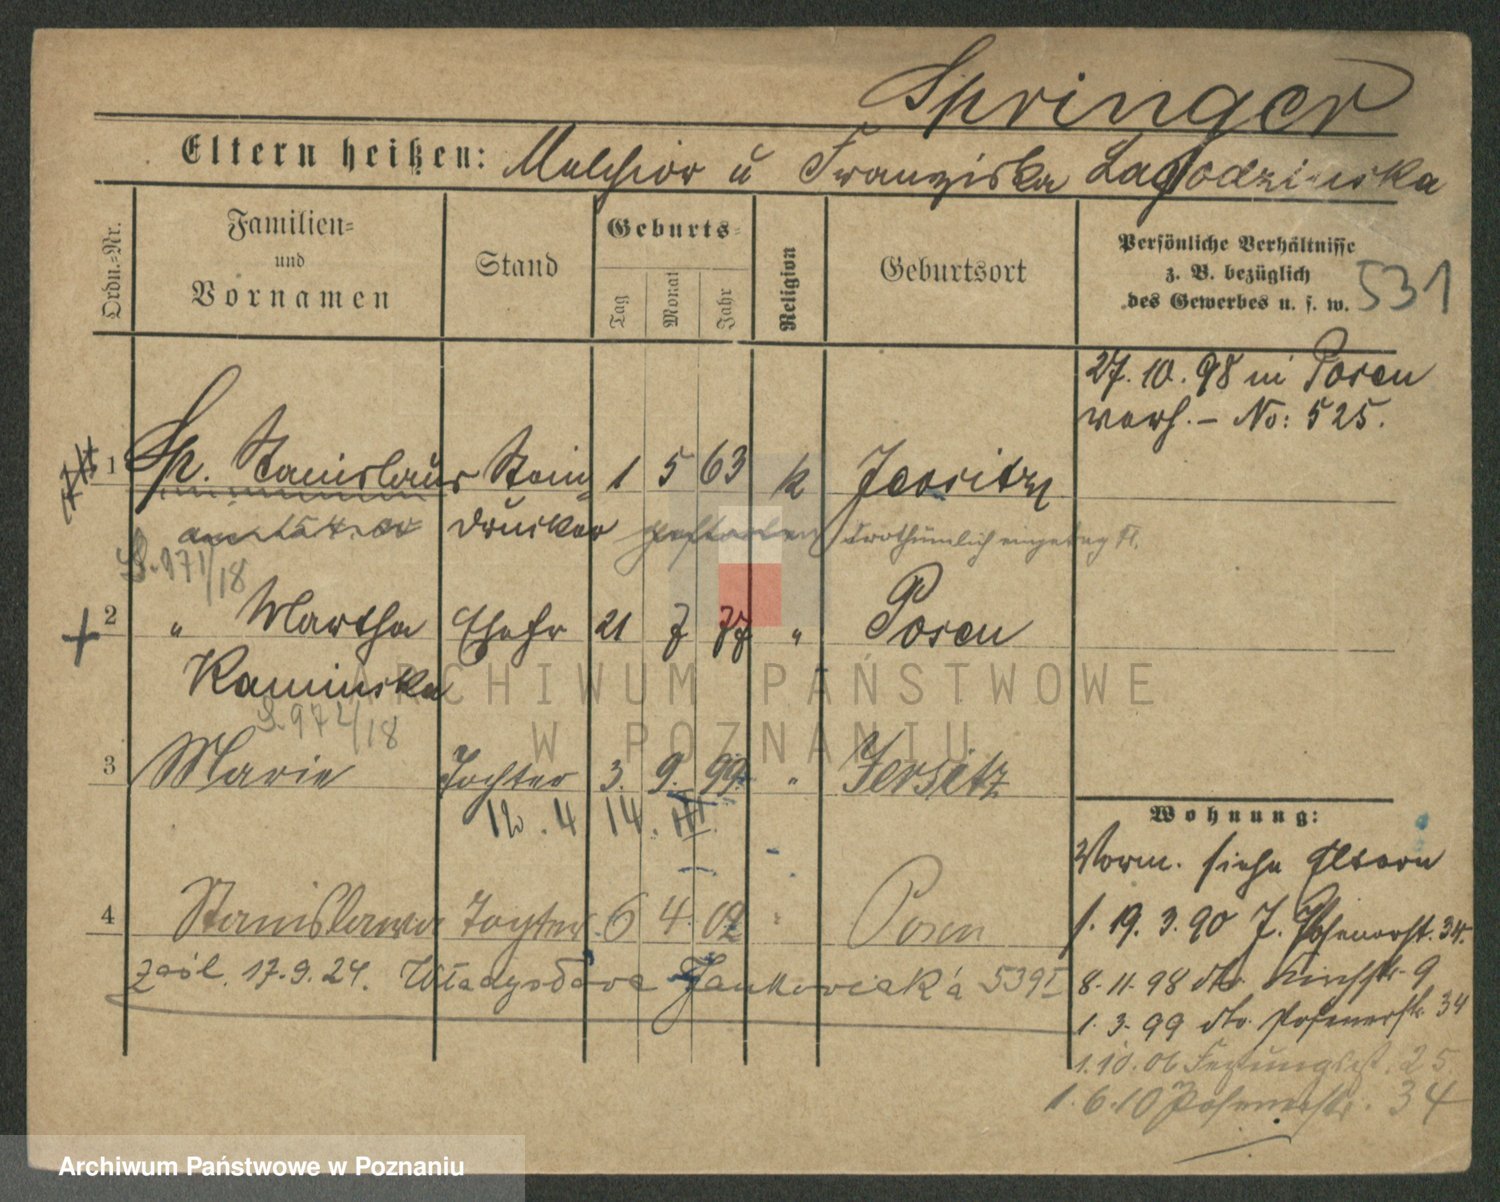 Springer
Eltern heißen: Melchior u Franziska Lagodzinska
Ordn.-Nr.
Familien- und Vornamen
Stand
Geburts-
Tag Monat Jahr
Religion
Geburtsort
Persönliche Verhältnisse
z. B. bezüglich
des Gewerbes u. s. w. 531
27. 10. 98 in Posen
verh. - No: 525.
1 Sp. Stanislaus Stein 1 5 63 k Jersitz
drucker gestorben irrthümlich eingetrag
S. 971/18
2 " Martha Ehefr 21 7 77 " Posen
Kaminska
S. 972/18
3 Marie Tochter 3. 9. 99. " Jersitz
12. 4 14. III.
4 Stanislawa Tochter 6 4 02 " Posen
zaśl. 17.9.24. Władysława Jankowiaka 5391
Wohnung:
Vorm. siehe Eltern
1. 19. 3. 90 J. Posenerst. 34.
8. 11. 98 dto. Kirchstr. 9
1. 3. 99 dto. Posenerstr. 34
1. 10. 06 25
1. 6. 10 Posenerstr. 34
ARCHIWUM PAŃSTWOWE
W POZNANIU
Archiwum Państwowe w Poznaniu